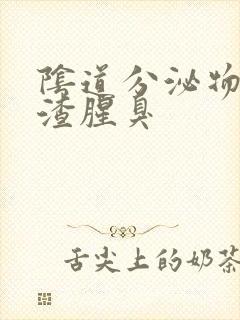 陰道分泌物
渣腥臭
舌尖上的奶茶